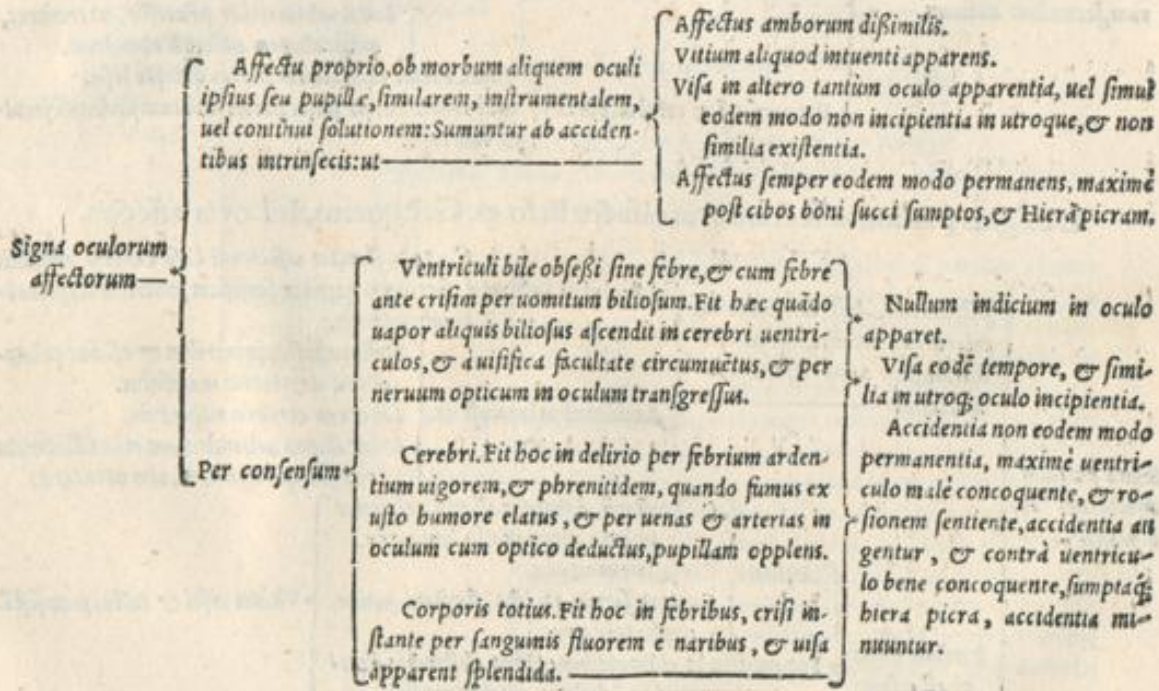 Signa oculorum
affectorum
Affectu proprio, ob morbum aliquem oculi
ipsius seu pupillæ, similarem, instrumentalem,
uel continui solutionem: Sumuntur ab acciden-
tibus intrinsecis: ut
Affectus amborum dißimilis.
Vitium aliquod intuenti apparens.
Visa in altero tantùm oculo apparentia, uel simul
eodem modo non incipientia in utroque, & non
similia existentia.
Affectus semper eodem modo permanens, maximè
post cibos boni succi sumptos, & Hierā picram.
Per consensum
Ventriculi bile obseßi sine febre, & cum febre
ante crisim per uomitum biliosum. Fit hæc quādo
uapor aliquis biliosus ascendit in cerebri uentri-
culos, & a uisifica facultate circumuētus, & per
neruum opticum in oculum transgressus.
Cerebri. Fit hoc in delirio per febrium arden-
tium uigorem, & phrenitidem, quando fumus ex
usto humore elatus, & per uenas & arterias in
oculum cum optico deductus, pupillam opplens.
Corporis totius. Fit hoc in febribus, crisi in-
stante per sanguinis fluorem è naribus, & uisa
apparent splendida.
Nullum indicium in oculo
apparet.
Visa eodē tempore, & simi-
lia in utroq; oculo incipientia.
Accidentia non eodem modo
permanentia, maximè uentri-
culo malè concoquente, & ro-
sionem sentiente, accidentia au
gentur, & contrà uentricu-
lo bene concoquente, sumptaq;
hiera picra, accidentia mi-
nuuntur.